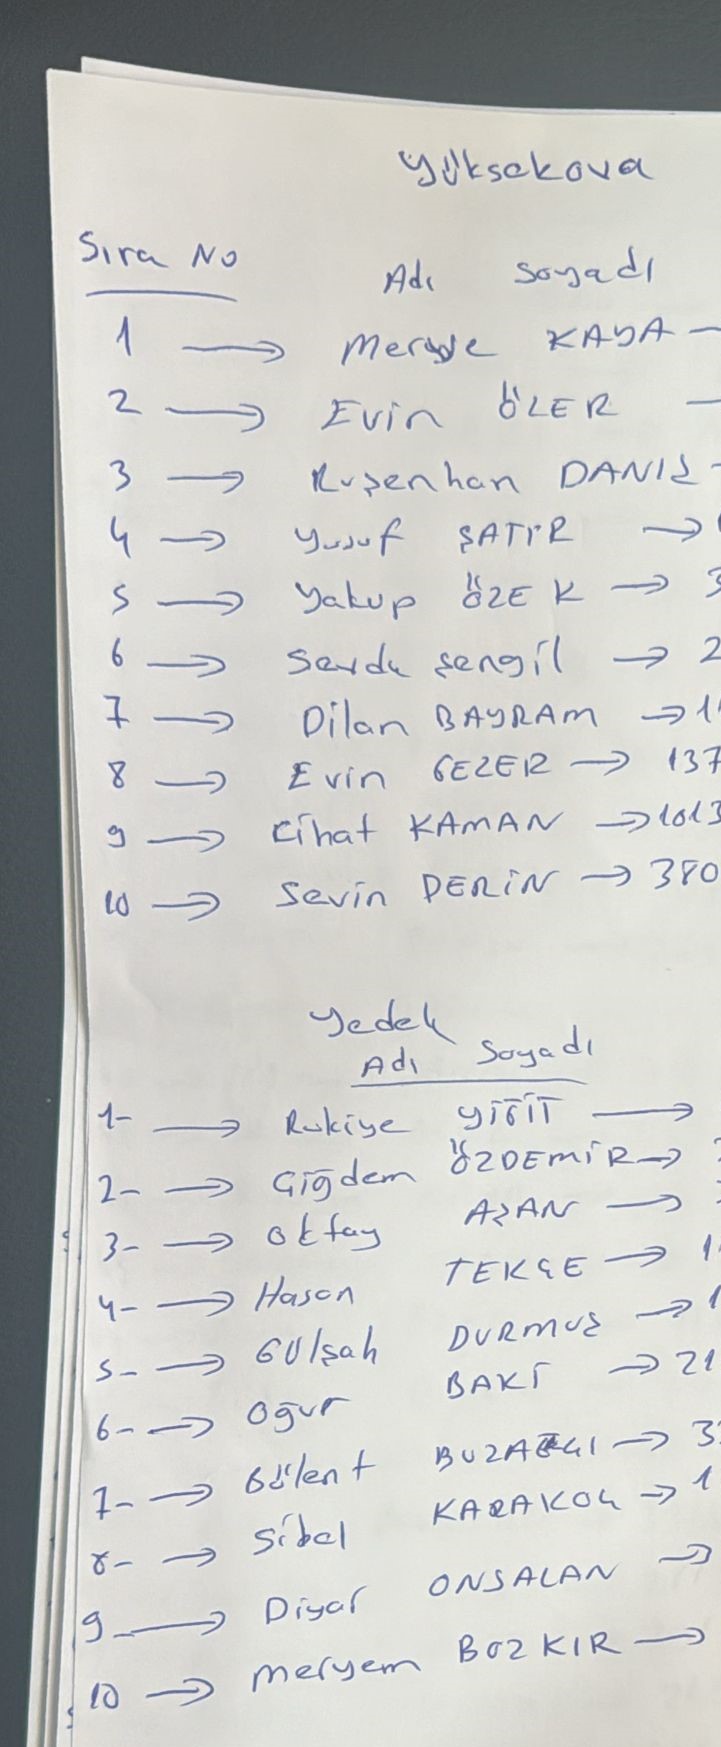 Yüksekova
Sıra No Adı Soyadı
1 → Merve KAYA -
2 → Evin ÖZER -
3 → Ruşenhan DANIŞ -
4 → Yusuf ŞATIR →
5 → Yakup ÖZEK → 3
6 → Serda şengil → 2
7 → Dilan BAYRAM → 11
8 → Evin GEZER → 137
9 → Cihat KAMAN → 1013
10 → Sevin DERİN → 380
Yedek
Adı Soyadı
1- → Rukiye YİĞİT →
2- → Çiğdem ÖZDEMİR →
3- → Oktay →
4- → Hasan TEKÇE → 1
5- → Gülşah DURMUŞ → 1
6- → Oğur BAKI → 21
7- → Bülent → 3
8- → Sibel KARAKOÇ → 1
9- → Diyar ONSALAN →
10 → Meryem BOZKIR →